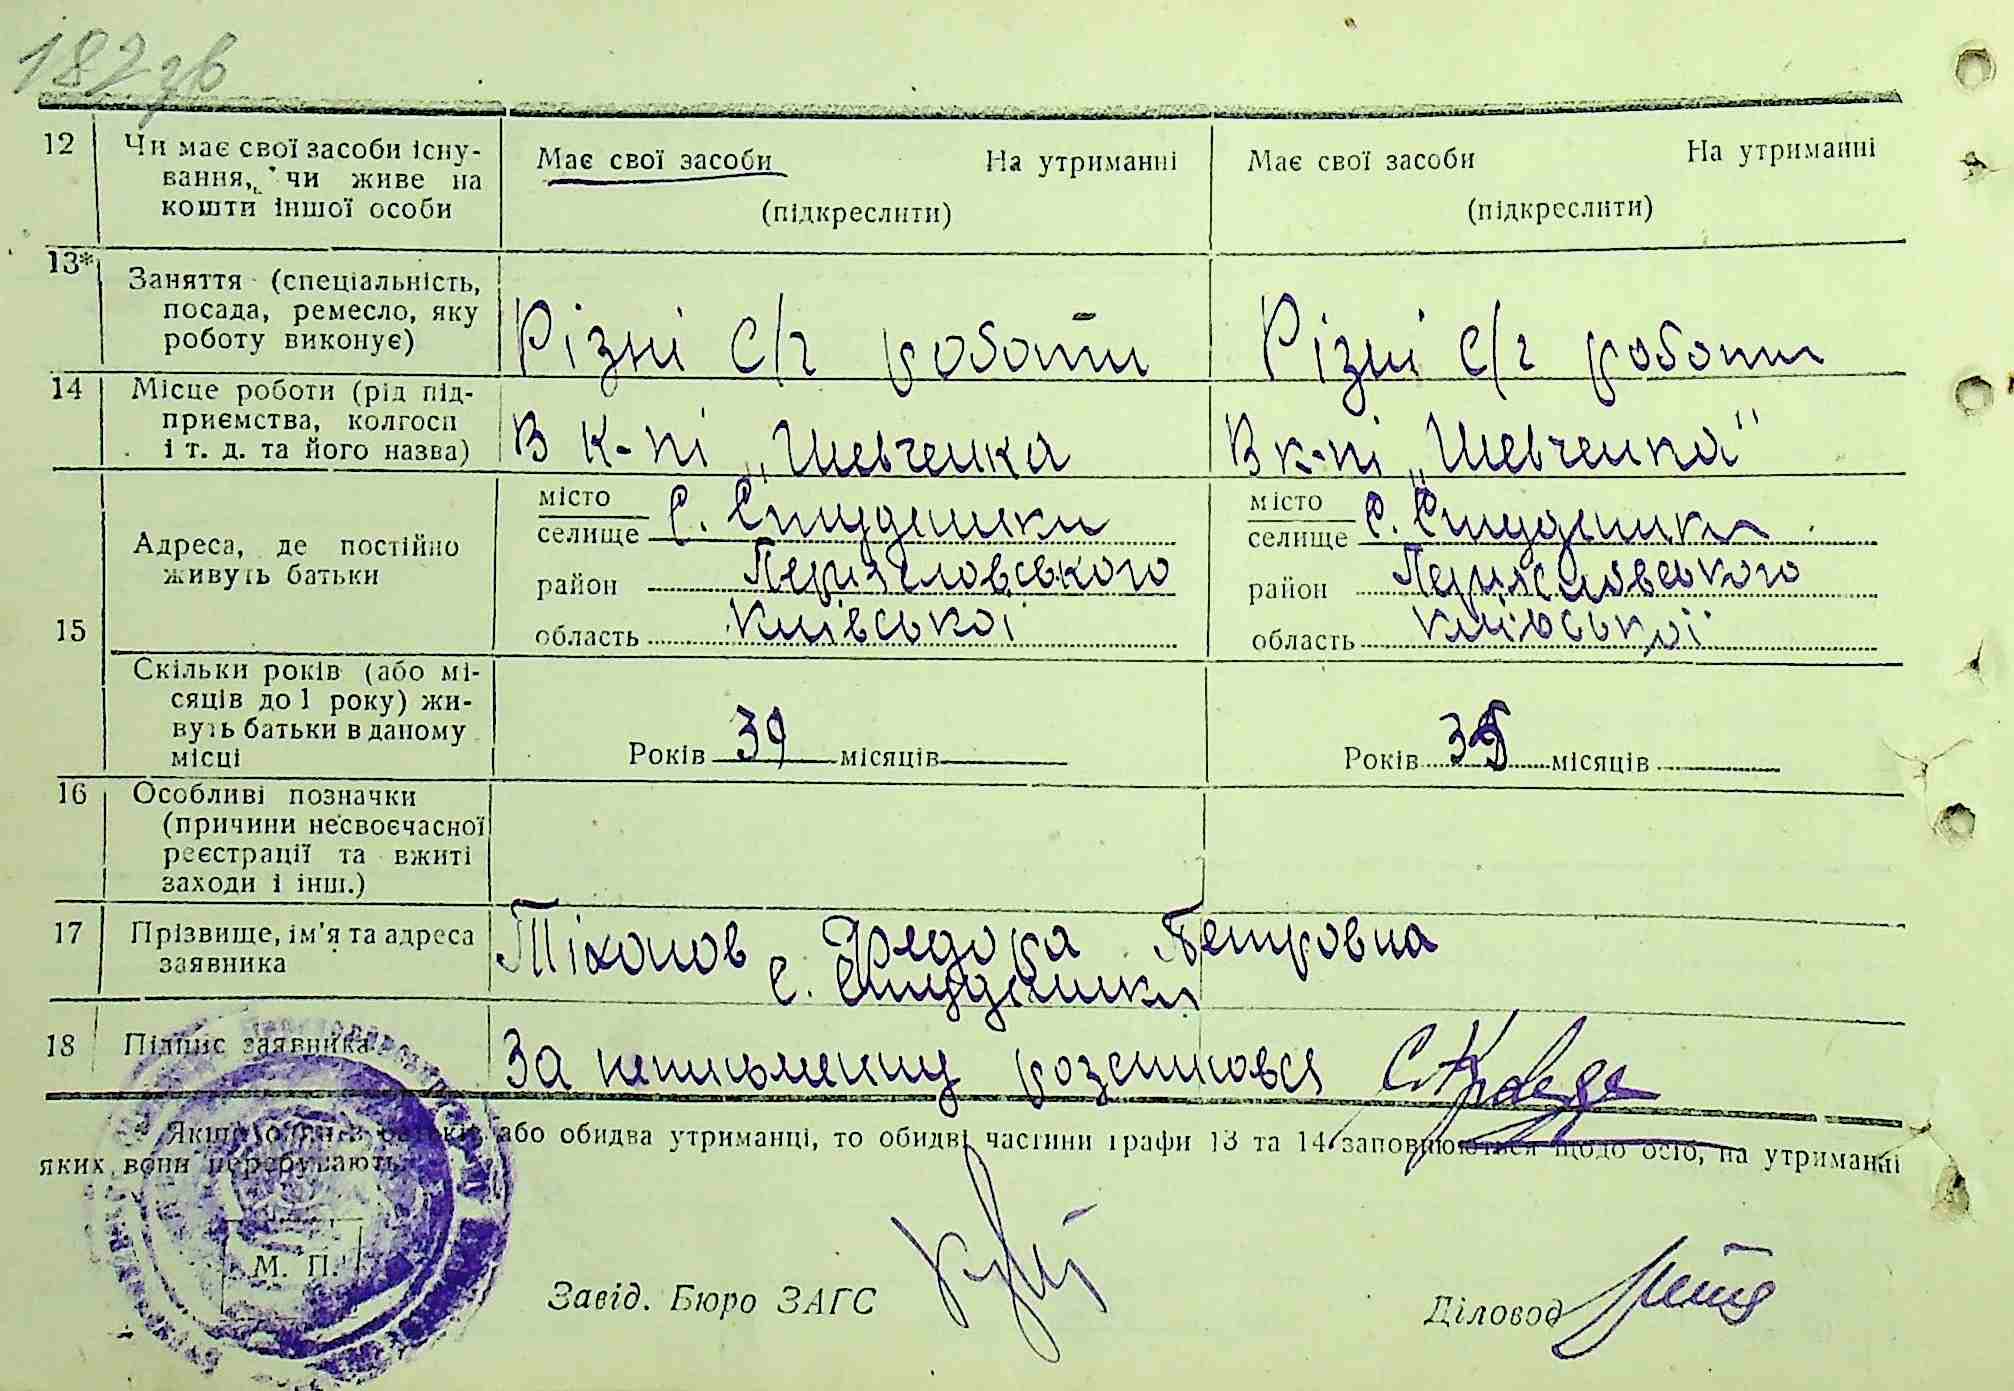 182 зв
12 Чи має свої засоби існу- Має свої засоби На утриманні Має свої засоби На утриманні
вання, чи живе на
кошти іншої особи (підкреслити) (підкреслити)
13*
Заняття (спеціальність,
посада, ремесло, яку Різні с/г роботи Різні с/г роботи
роботу виконує)
14 Місце роботи (рід під-
приємства, колгосп В к-пі „Шевченка В к-пі „Шевченка"
і т. д. та його назва)
місто місто
Адреса, де постійно селище с. Студеники селище с. Студеники
живуть батьки район Переяславського район Переяславського
15 область Київської область Київської
Скільки років (або мі-
сяців до 1 року) жи-
вуть батьки в даному
місці Років 39 місяців Років місяців
16 Особливі позначки
(причини несвоєчасної
реєстрації та вжиті
заходи і інш.)
17 Прізвище, ім'я та адреса Тіхонов Федора Петровна
заявника с. Студеники
18 Підпис заявника За неписьменну розписовся
Якщо або обидва утриманці, то обидві частини графи 13 та 14 заповнюються щодо осіб, на утриманні
яких вони перебувають.
М. П.
Завід. Бюро ЗАГС Діловод